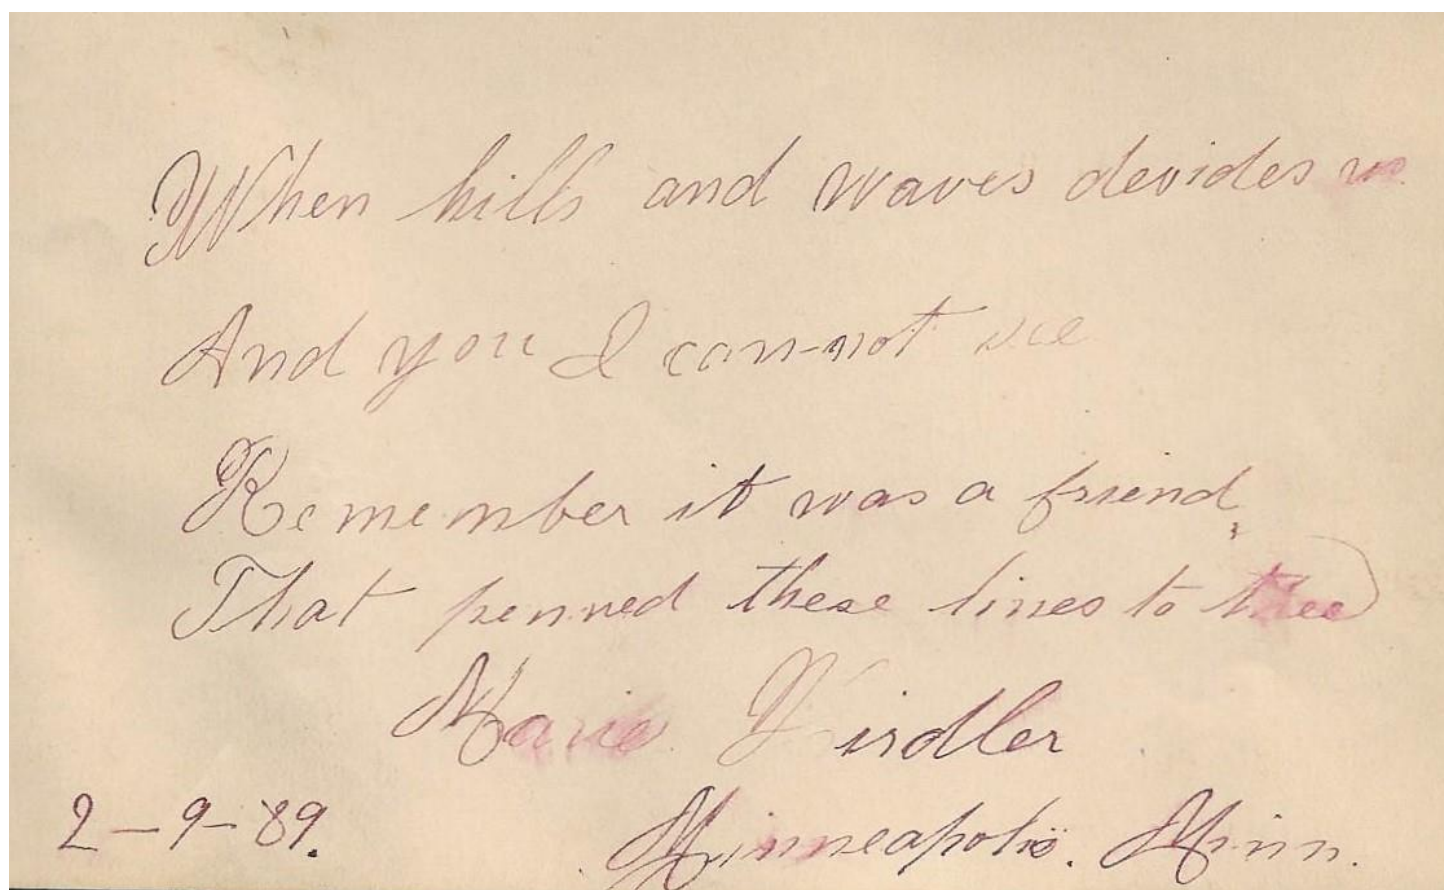 When hills and waves devides us
And you I can-not see
Remember it was a friend,
That penned these lines to thee
Marie
2-9-89. Minneapolis. Minn.